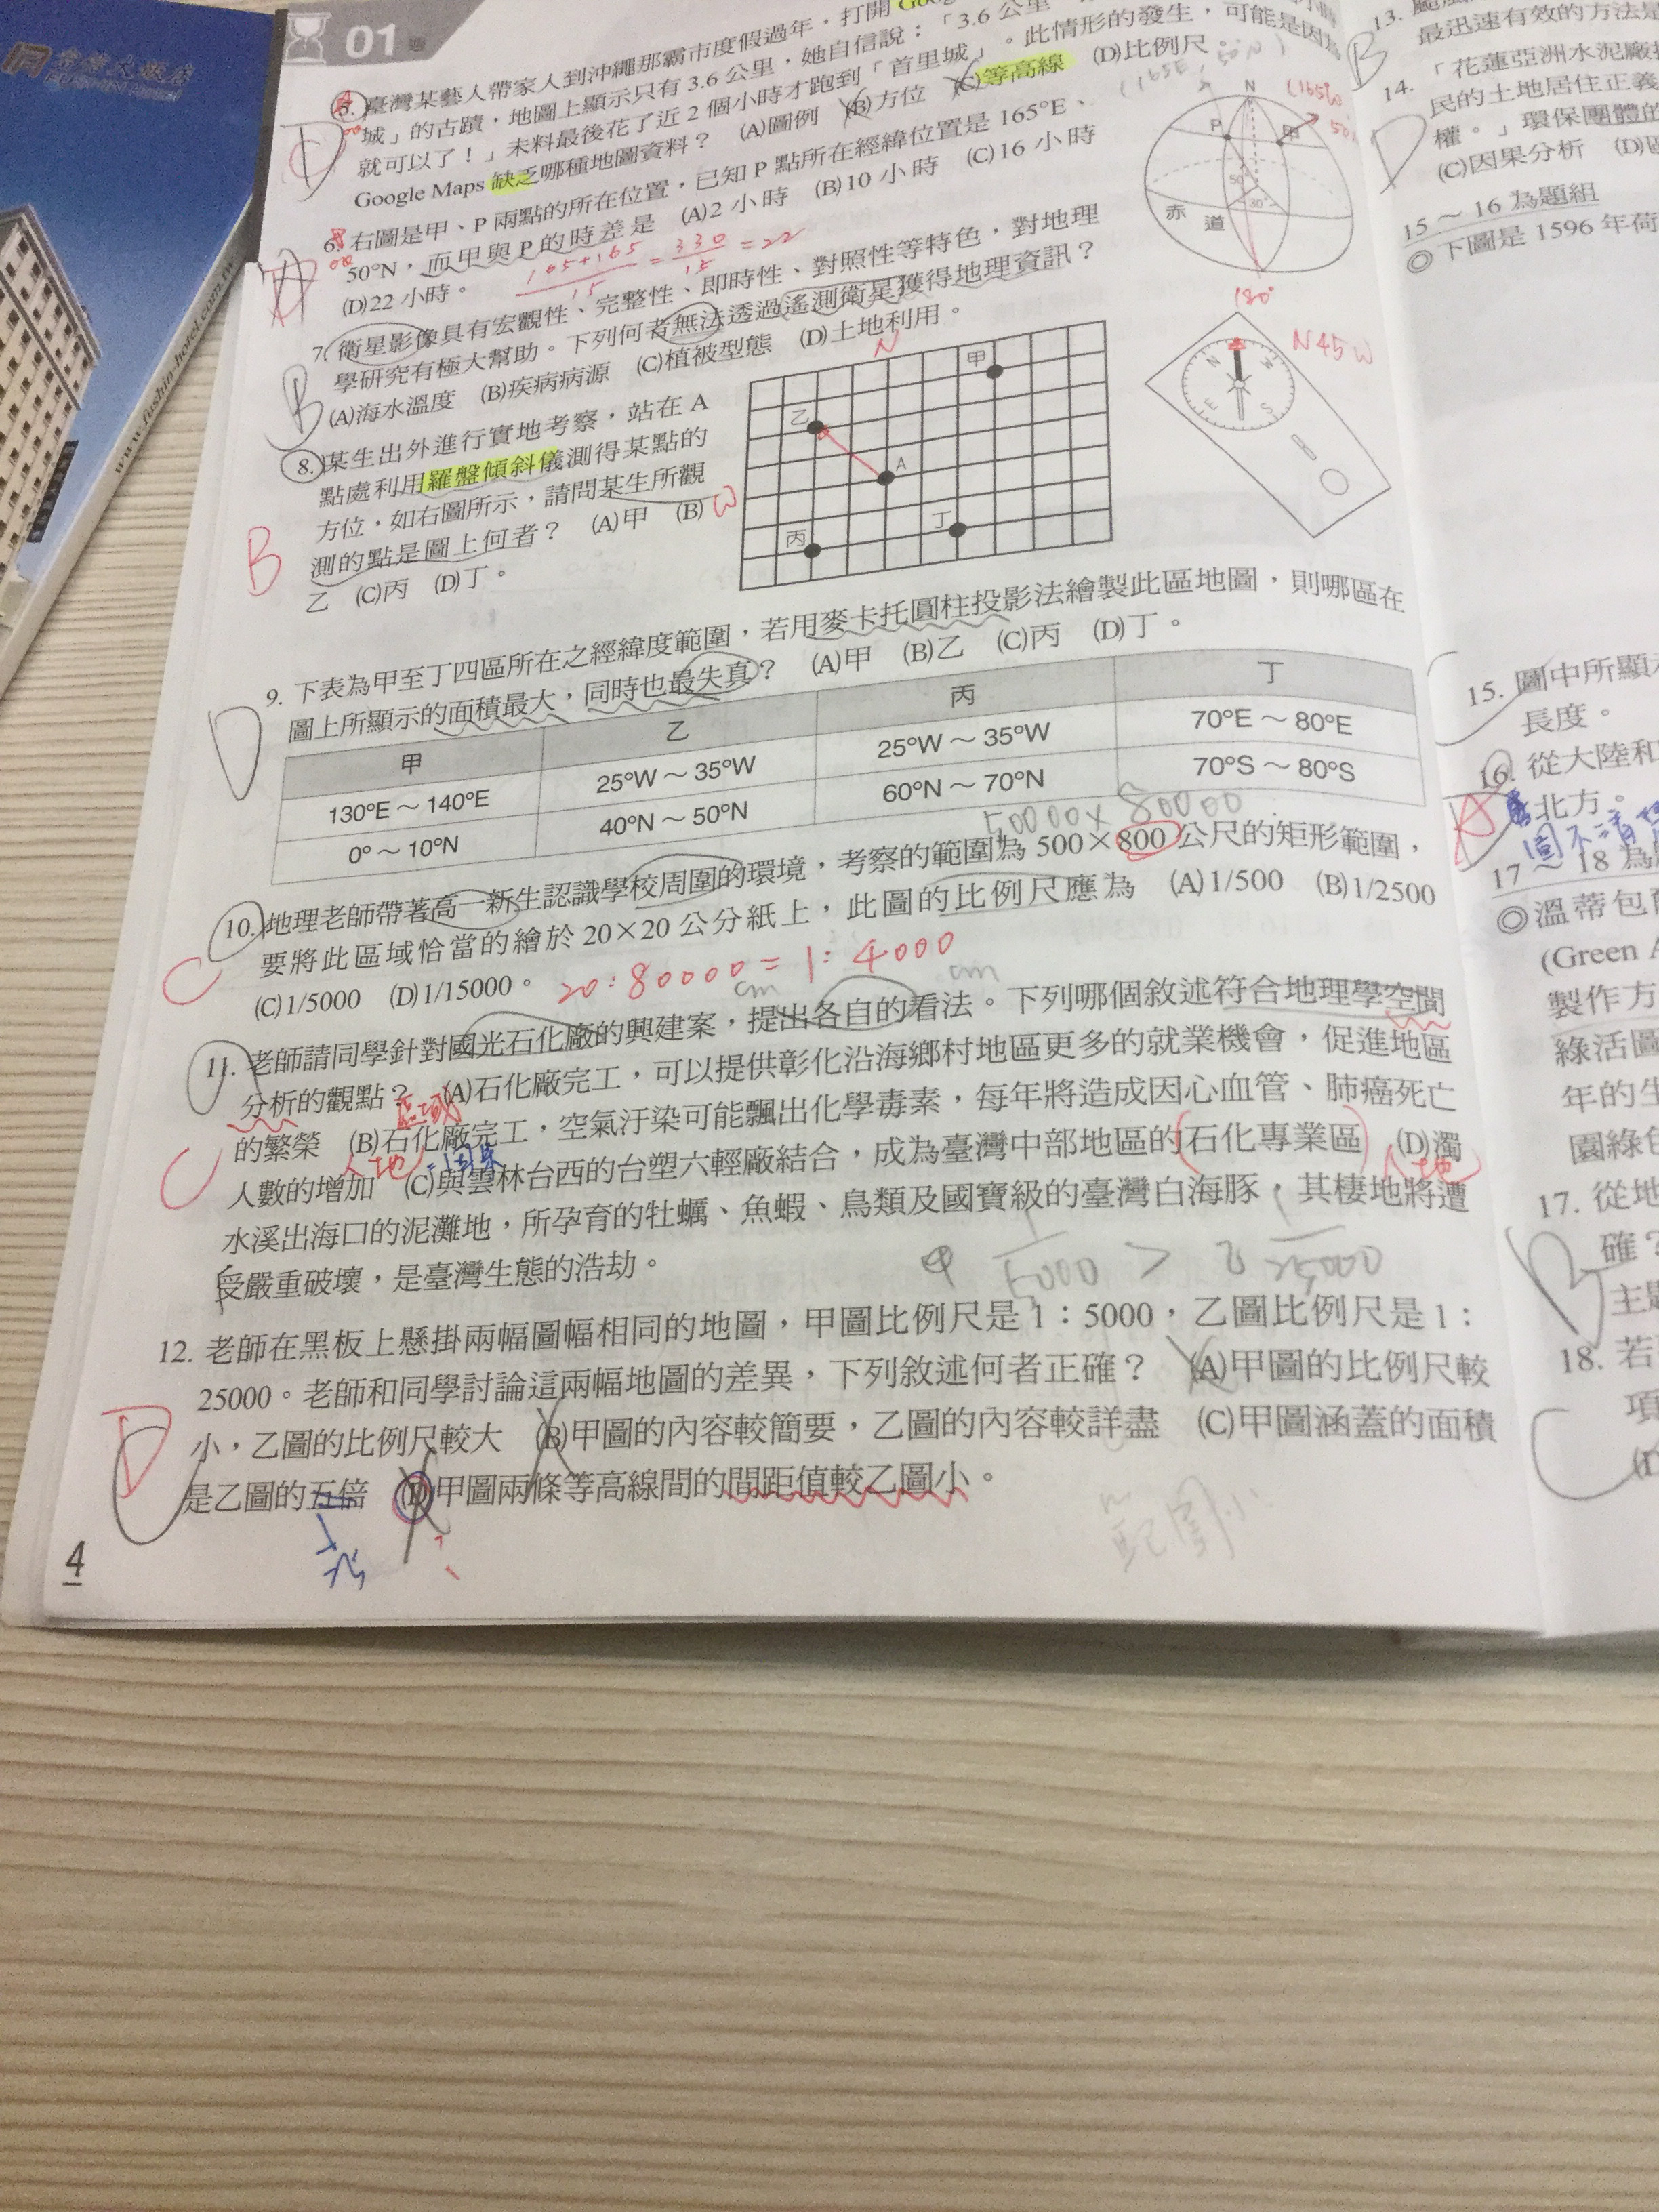 www.fushin-hotel.com.tw
01
臺灣某藝人帶家人到沖繩那霸市度假過年，打開
城」的古蹟，地圖上顯示只有 3.6 公里，她自信說：「3.6 公里
就可以了！」未料最後花了近 2 個小時才跑到「首里城」。此情形的發生，可能是因為
Google Maps 缺乏哪種地圖資料？ (A)圖例 (B)方位 (C)等高線 (D)比例尺。
D
6. 右圖是甲、P 兩點的所在位置，已知 P 點所在經緯位置是 165°E、
50°N，而甲與 P 的時差是 (A)2 小時 (B)10 小時 (C)16 小時
(D)22 小時。
165+165/15 = 330/15 = 22
A
N
P
甲
50°
30°
赤道
180°
7. 衛星影像具有宏觀性、完整性、即時性、對照性等特色，對地理
學研究有極大幫助。下列何者無法透過遙測衛星獲得地理資訊？
(A)海水溫度 (B)疾病病源 (C)植被型態 (D)土地利用。
B
8. 某生出外進行實地考察，站在 A
點處利用羅盤傾斜儀測得某點的
方位，如右圖所示，請問某生所觀
測的點是圖上何者？ (A)甲 (B)
乙 (C)丙 (D)丁。
B
N
W
甲
乙
A
丁
丙
N45W
N
W
E
S
9. 下表為甲至丁四區所在之經緯度範圍，若用麥卡托圓柱投影法繪製此區地圖，則哪區在
圖上所顯示的面積最大，同時也最失真？ (A)甲 (B)乙 (C)丙 (D)丁。
D
甲 乙 丙 丁
130°E～140°E 25°W～35°W 25°W～35°W 70°E～80°E
0°～10°N 40°N～50°N 60°N～70°N 70°S～80°S
50000×80000
10. 地理老師帶著高一新生認識學校周圍的環境，考察的範圍為 500×800 公尺的矩形範圍，
要將此區域恰當的繪於 20×20 公分紙上，此圖的比例尺應為 (A)1/500 (B)1/2500
(C)1/5000 (D)1/15000。
20：80000＝1：4000
cm
cm
C
11. 老師請同學針對國光石化廠的興建案，提出各自的看法。下列哪個敘述符合地理學空間
分析的觀點？ (A)石化廠完工，可以提供彰化沿海鄉村地區更多的就業機會，促進地區
的繁榮 (B)石化廠完工，空氣汙染可能飄出化學毒素，每年將造成因心血管、肺癌死亡
人數的增加 (C)與雲林台西的台塑六輕廠結合，成為臺灣中部地區的石化專業區 (D)濁
水溪出海口的泥灘地，所孕育的牡蠣、魚蝦、鳥類及國寶級的臺灣白海豚，其棲地將遭
受嚴重破壞，是臺灣生態的浩劫。
區域
人地
人地
C
1/5000 > 乙 1/25000
12. 老師在黑板上懸掛兩幅圖幅相同的地圖，甲圖比例尺是 1：5000，乙圖比例尺是 1：
25000。老師和同學討論這兩幅地圖的差異，下列敘述何者正確？ (A)甲圖的比例尺較
小，乙圖的比例尺較大 (B)甲圖的內容較簡要，乙圖的內容較詳盡 (C)甲圖涵蓋的面積
是乙圖的五倍 (D)甲圖兩條等高線間的間距值較乙圖小。
D
範圍小
4
13.
最迅速有效的方法是
B
14. 「花蓮亞洲水泥廠
民的土地居住正義
權。」環保團體的
(C)因果分析
D
15～16 為題組
◎下圖是 1596 年荷
15. 圖中所顯
長度。
16. 從大陸和
北方。
A
17～18 為
◎溫蒂包
(Green
製作方
綠活圖
年的生
園綠色
17. 從地
確？
主題
18. 若
項